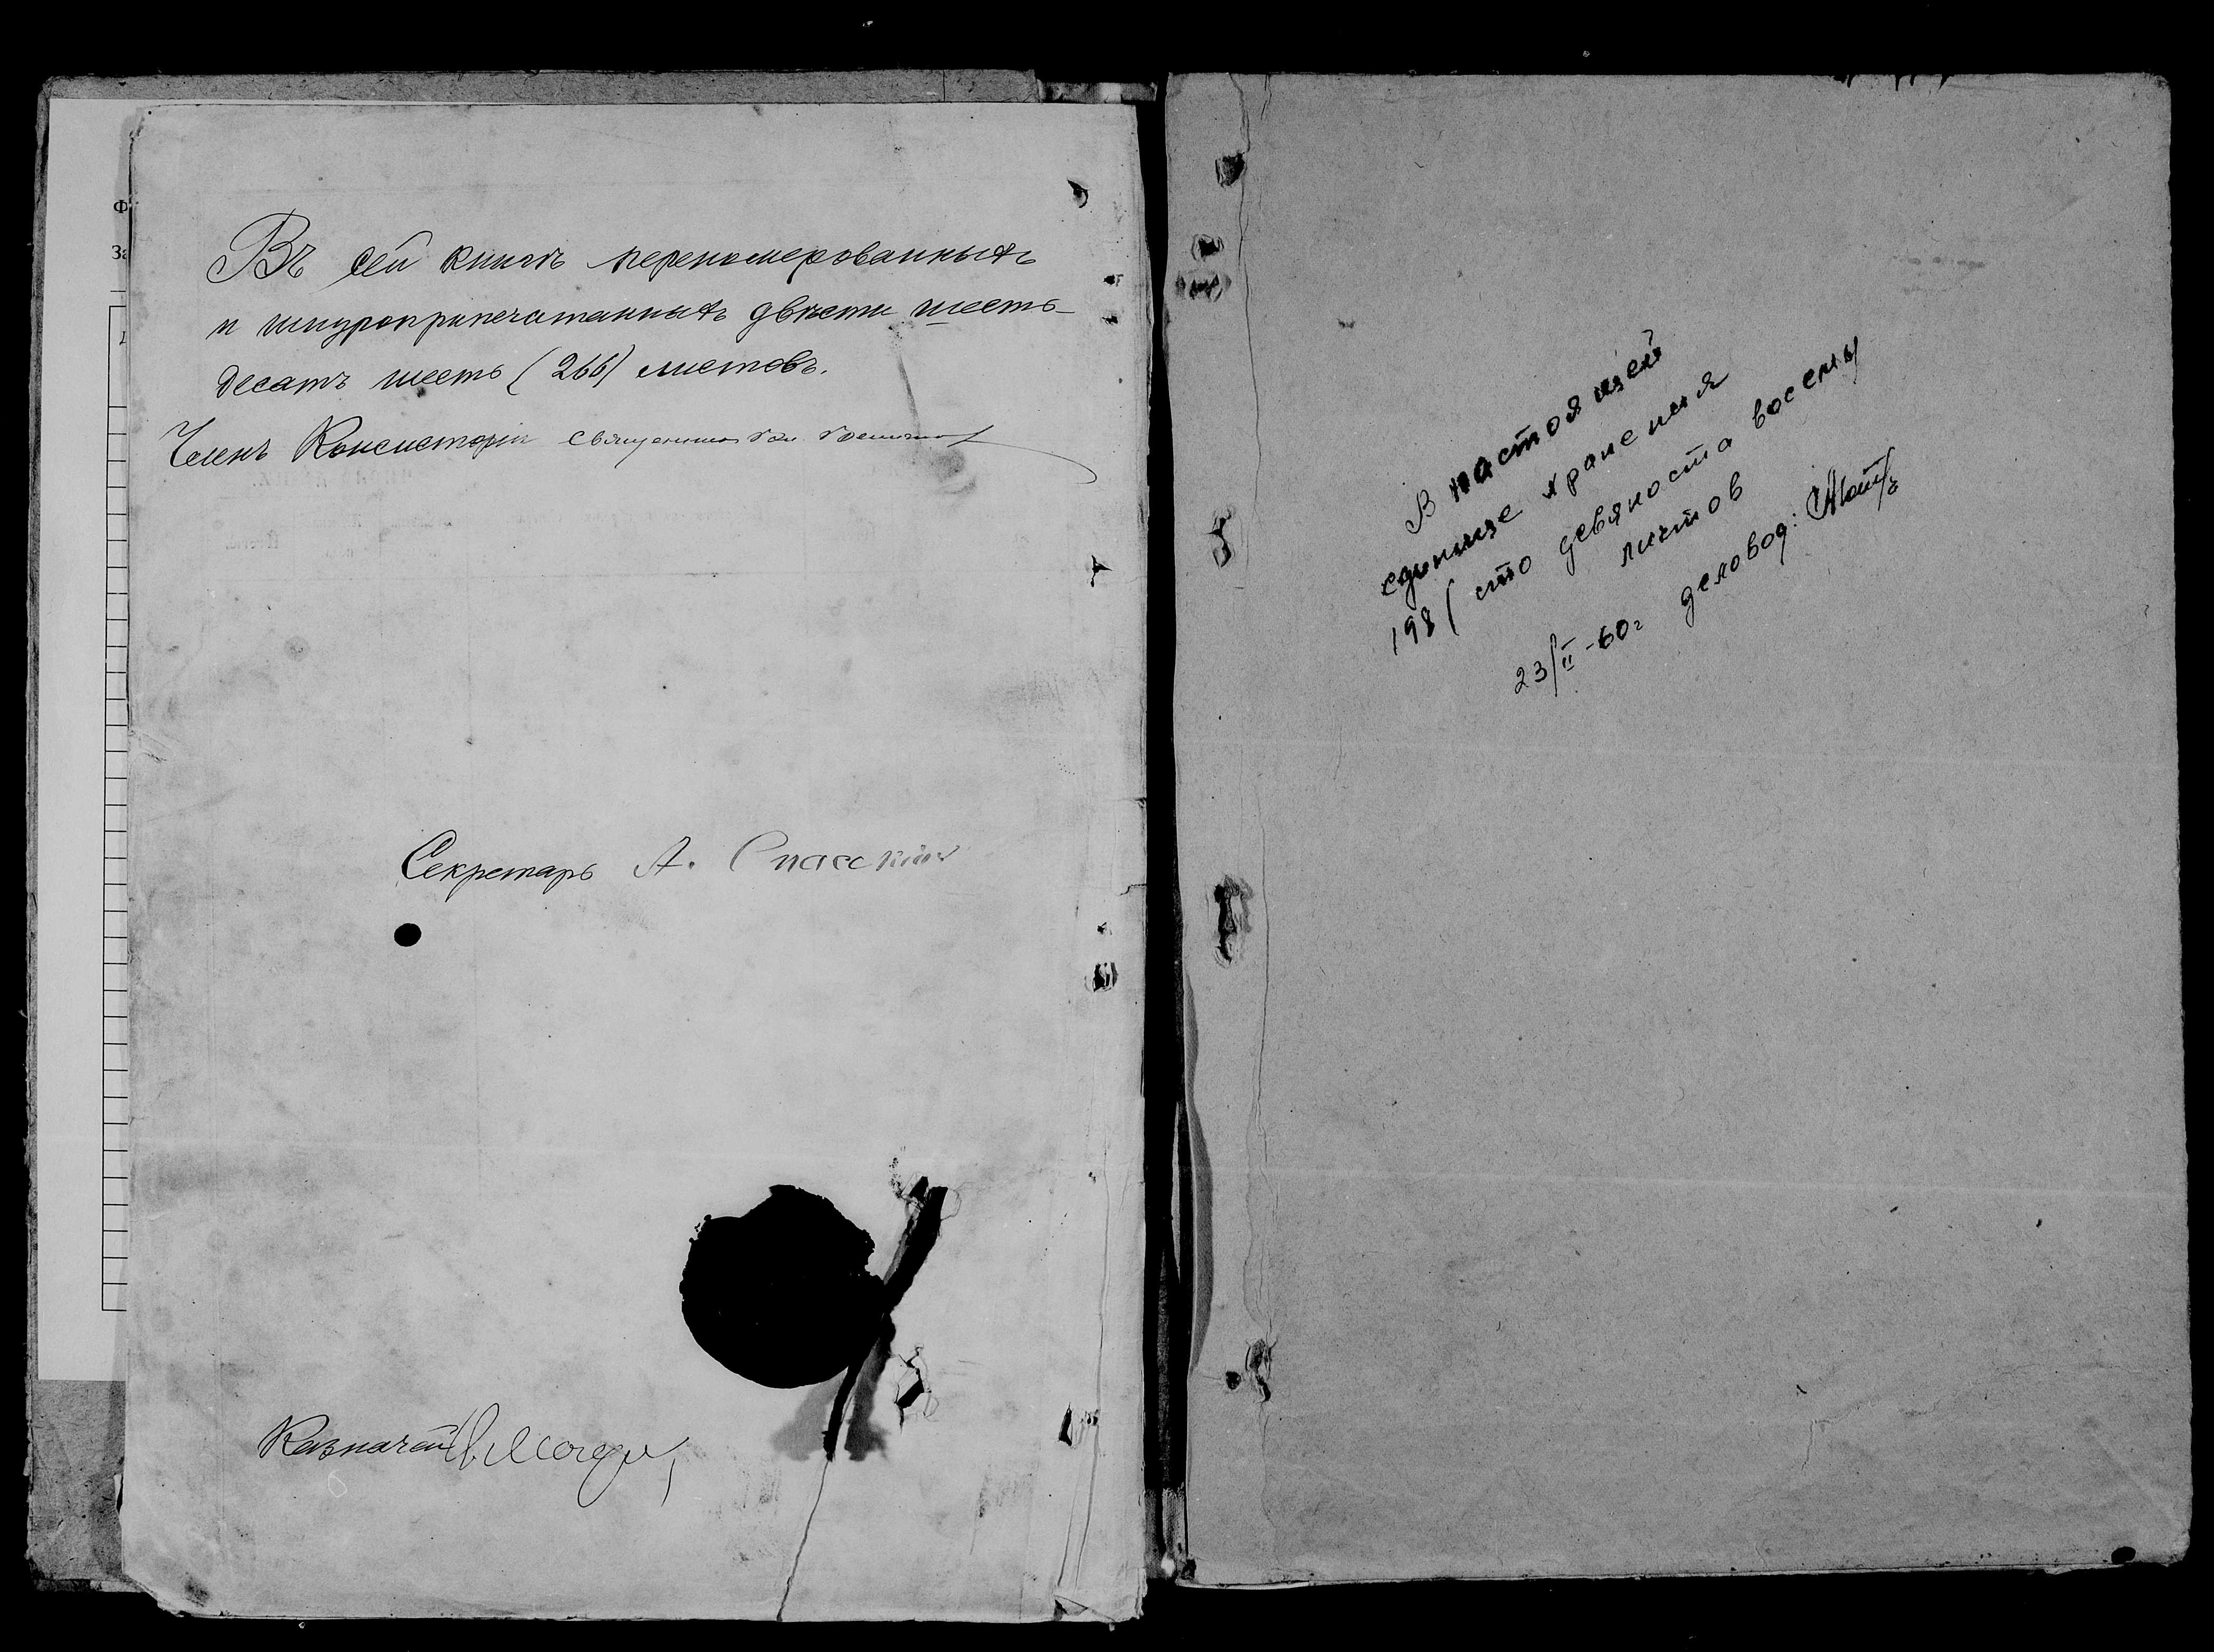 Въ сей книгѣ переномерованныхъ
и шнуроприпечатанныхъ двѣсти шесть-
десятъ шесть (266) листовъ.
Членъ Консисторіи священникъ
Секретарь А. Спасскій
Казначей
В настоящей
единице хранения
198 ( сто девяноста восемь
листов
23/II-60г деловод: